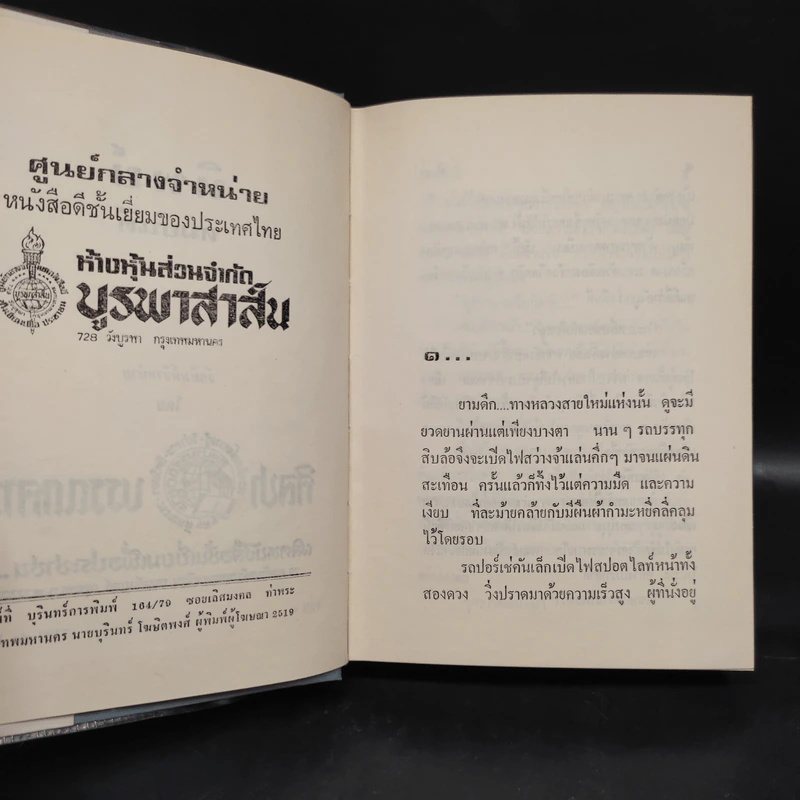 ศูนย์กลางจำหน่าย
หนังสือดีชั้นเยี่ยมของประเทศไทย
ห้างหุ้นส่วนจำกัด
บูรพาสาส์น
728 วังบูรพา กรุงเทพมหานคร
บุรินทร์การพิมพ์ 164/79 ซอยเลิศมงคล ท่าพระ
นายบุรินทร์ โฆษิตพงศ์ ผู้พิมพ์ผู้โฆษณา 2519
๑...
ยามดึก....ทางหลวงสายใหม่แห่งนั้น ดูจะมี
ยวดยานผ่านแต่เพียงบางตา นาน ๆ รถบรรทุก
สิบล้อจึงจะเปิดไฟสว่างจ้าแล่นคึก ๆ มาจนแผ่นดิน
สะเทือน ครั้นแล้วก็ทิ้งไว้แต่ความมืด และความ
เงียบ ที่ละม้ายคล้ายกับมีผืนผ้ากำมะหยี่คลี่คลุม
ไว้โดยรอบ
รถปอร์เช่คันเล็กเปิดไฟสปอตไลท์หน้าทั้ง
สองดวง วิ่งปราดมาด้วยความเร็วสูง ผู้ที่นั่งอยู่